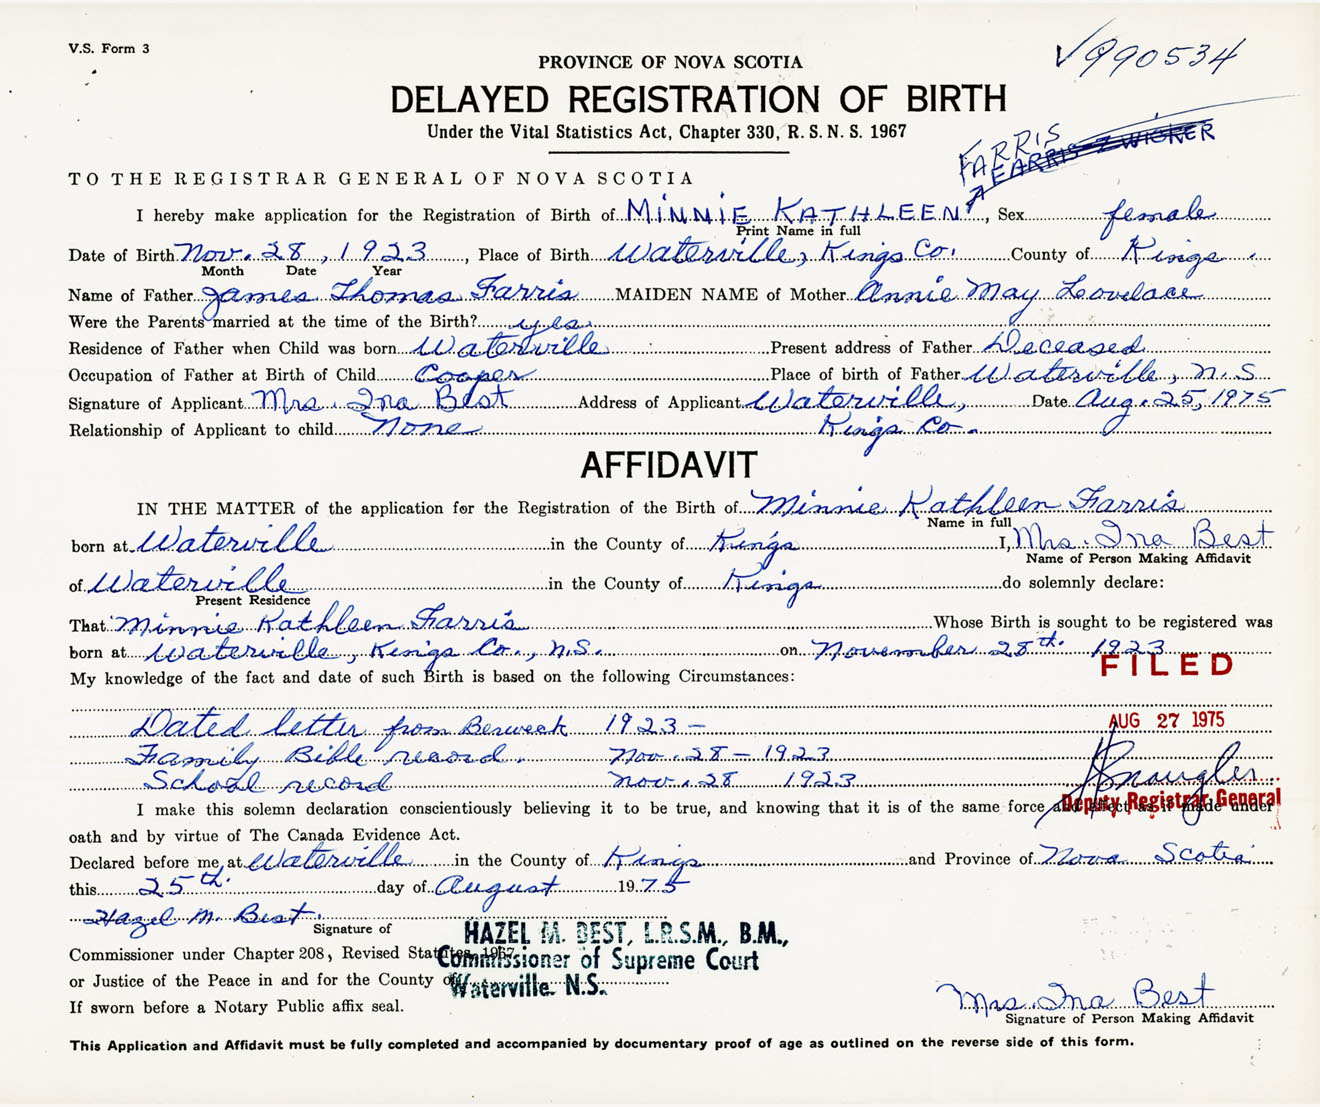 V.S. Form 3
V990534
PROVINCE OF NOVA SCOTIA
DELAYED REGISTRATION OF BIRTH
Under the Vital Statistics Act, Chapter 330, R. S. N. S. 1967
FARRIS
FARRIS ZWICKER
TO THE REGISTRAR GENERAL OF NOVA SCOTIA
I hereby make application for the Registration of Birth of MINNIE KATHLEEN, Sex female
Print Name in full
Date of Birth Nov. 28, 1923, Place of Birth Waterville, Kings Co. County of Kings
Month Date Year
Name of Father James Thomas Farris MAIDEN NAME of Mother Annie May Lovelace
Were the Parents married at the time of the Birth? yes
Residence of Father when Child was born Waterville Present address of Father Deceased
Occupation of Father at Birth of Child Cooper Place of birth of Father Waterville, N.S
Signature of Applicant Mrs. Ina Best Address of Applicant Waterville, Date Aug. 25, 1975
Relationship of Applicant to child None Kings Co.
AFFIDAVIT
IN THE MATTER of the application for the Registration of the Birth of Minnie Kathleen Farris
Name in full
born at Waterville in the County of Kings I, Mrs. Ina Best
Name of Person Making Affidavit
of Waterville in the County of Kings do solemnly declare:
Present Residence
That Minnie Kathleen Farris Whose Birth is sought to be registered was
born at Waterville, Kings Co., N.S. on November 28th 1923
FILED
My knowledge of the fact and date of such Birth is based on the following Circumstances:
AUG 27 1975
Dated letter from Berwick 1923 -
Family Bible record. Nov. 28 - 1923
School record Nov. 28 1923
Deputy Registrar General
I make this solemn declaration conscientiously believing it to be true, and knowing that it is of the same force and effect as if made under
oath and by virtue of The Canada Evidence Act.
Declared before me, at Waterville in the County of Kings and Province of Nova Scotia
this 25th day of August 1975
Hazel M. Best.
Signature of
HAZEL M. BEST, L.R.S.M., B.M.,
Commissioner under Chapter 208, Revised Statutes, 1967
Commissioner of Supreme Court
or Justice of the Peace in and for the County of
Waterville. N.S.
If sworn before a Notary Public affix seal.
Mrs. Ina Best
Signature of Person Making Affidavit
This Application and Affidavit must be fully completed and accompanied by documentary proof of age as outlined on the reverse side of this form.